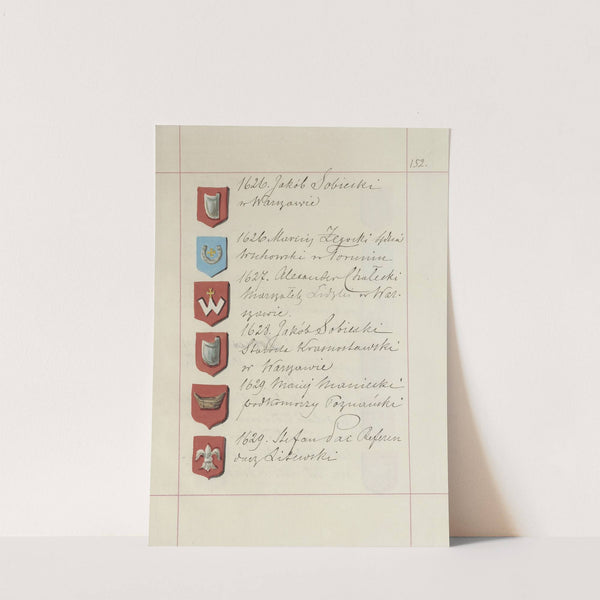 152.
1626. Jakób Sobieski
w Warszawie
1626. Marcin Żegocki sędzia
wschowski w Toruniu
1627. Alexander Chalecki
Marszałek Lidzki w War-
szawie.
1628. Jakób Sobieski
Starosta Krasnostawski
w Warszawie
1629 Maciej Maniecki
podkomorzy Poznański
1629. Stefan Pac Referen
darz Litewski